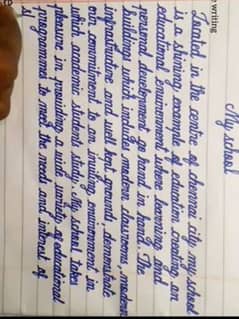 writing
My school
Located in the centre of chennai city my school
is a shining example of education creating an
educational environment where learning and
personal development go hand in hand. The
buildings which includes modern classrooms, modern
infrastructure and well kept ground demonstrate
own commitment to an inviting environment in
which academic students study. My school takes
pleasure in providing a wide variety of educational
programmes to meet the needs and interest of